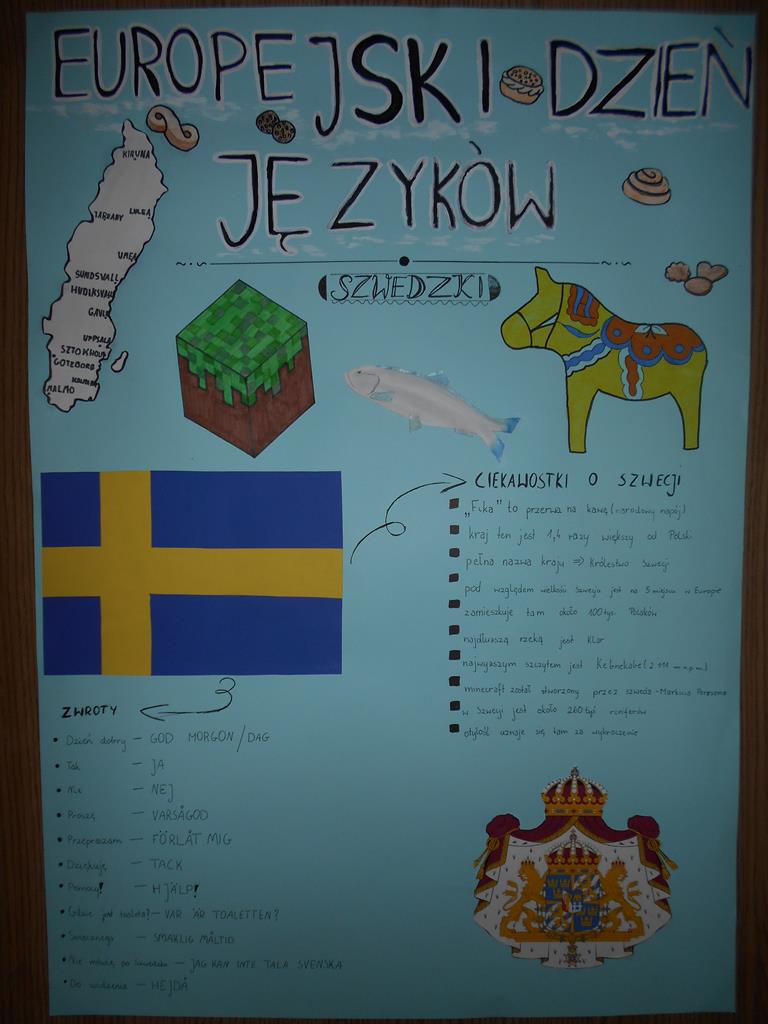 EUROPEJSKI DZIEŃ
JĘZYKÓW
SZWEDZKI
KIRUNA
TÄRNABY LULEÅ
UMEÅ
SUNDSVALL
HUDIKSVALL
GÄVLE
UPPSALA
SZTOKHOLM
GÖTEBORG
KALMAR
MALMO
CIEKAWOSTKI O SZWECJI
„Fika" to przerwa na kawę (narodowy napój)
kraj ten jest 1,4 razy większy od Polski
pełna nazwa kraju => Królestwo Szwecji
pod względem wielkości Szwecja jest na 5 miejscu w Europie
zamieszkuje tam około 100 tyś. Polaków
najdłuższą rzeką jest Klar
najwyższym szczytem jest Kebnekaise (2 111 m n.p.m)
minecraft został stworzony przez szweda - Markusa Perssona
w Szwecji jest około 260 tyś reniferów
otyłość uznaje się tam za wykroczenie
ZWROTY
• Dzień dobry – GOD MORGON / DAG
• Tak – JA
• Nie – NEJ
• Proszę – VARSÅGOD
• Przepraszam – FÖRLÅT MIG
• Dziękuję – TACK
• Pomocy! – HJÄLP!
• Gdzie jest toaleta? – VAR ÄR TOALETTEN?
• Smacznego – SMAKLIG MÅLTID
• Nie mówię po szwedzku – JAG KAN INTE TALA SVENSKA
• Do widzenia – HEJDÅ